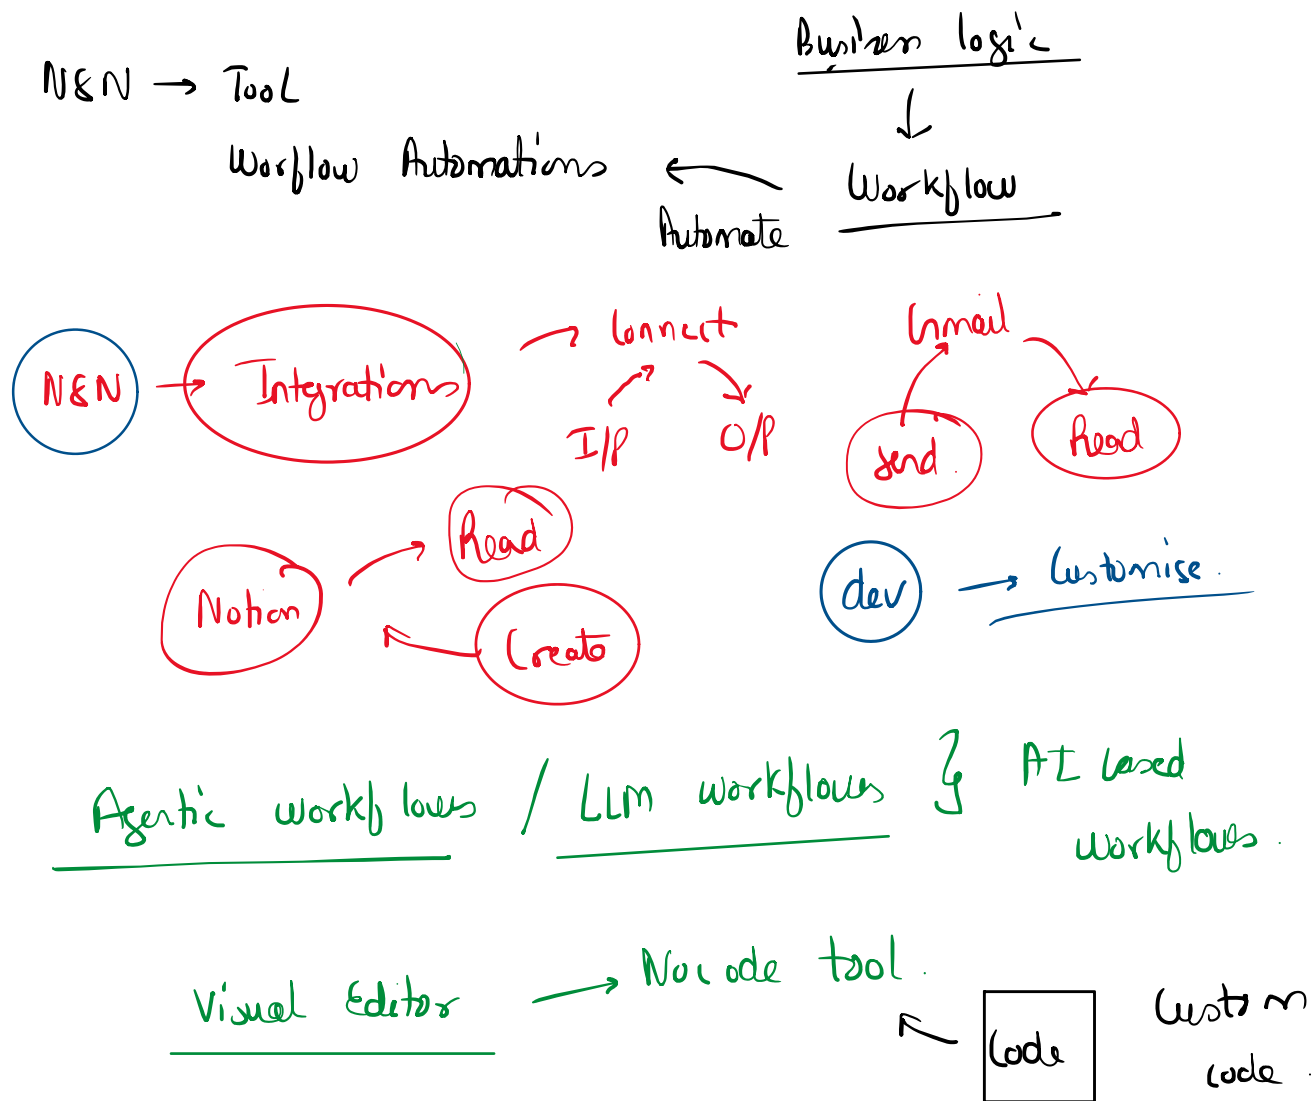 Business logic
N8N → Tool
Worflow Automations
Workflow
Automate
N8N → Integrations
Connect
I/P
O/P
Gmail
Send.
Read
Notion
Read
Create
dev → Customise.
Agentic workflows / LLM workflows } AI based
workflows.
Visual Editor → Nocode tool.
Code
Custom
code.